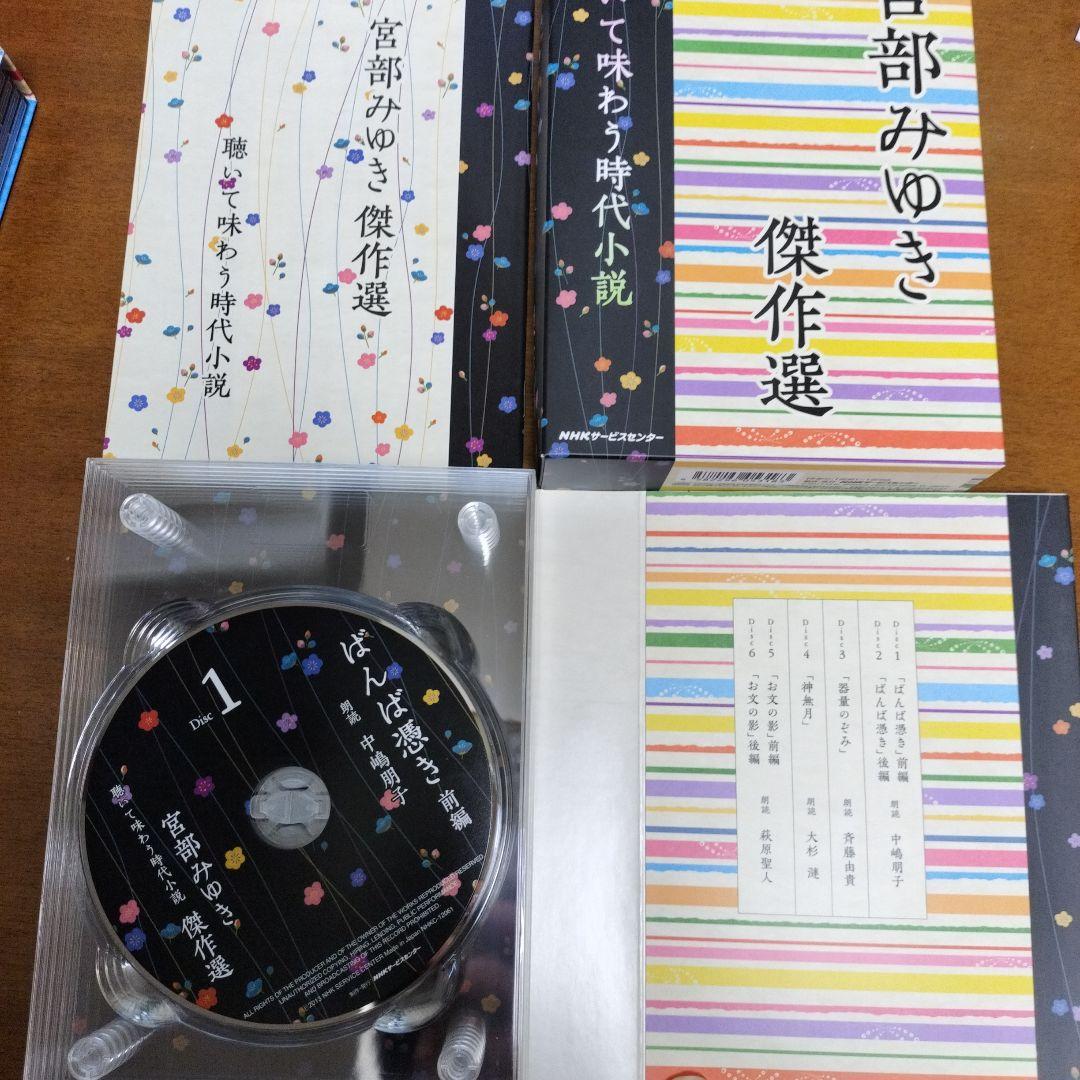 宮部みゆき 傑作選
聴いて味わう時代小説
いて味わう時代小説
NHKサービスセンター
宮部みゆき
傑作選
ばんば憑き 前編
朗読 中嶋朋子
Disc 1
宮部みゆき 傑作選
聴いて味わう時代小説
ALL RIGHTS OF THE PRODUCER AND OF THE OWNER OF THE WORKS REPRODUCED RESERVED.
UNAUTHORIZED COPYING, HIRING, LENDING, PUBLIC PERFORMANCE
AND BROADCASTING OF THIS RECORD PROHIBITED.
Ⓟ2013 NHK SERVICE CENTER Made in Japan NHKC-12061
制作・発行 NHKサービスセンター
Disc1 「ばんば憑き」前編 朗読 中嶋朋子
Disc2 「ばんば憑き」後編
Disc3 「器量のぞみ」 朗読 斉藤由貴
Disc4 「神無月」 朗読 大杉 漣
Disc5 「お文の影」前編 朗読 萩原聖人
Disc6 「お文の影」後編